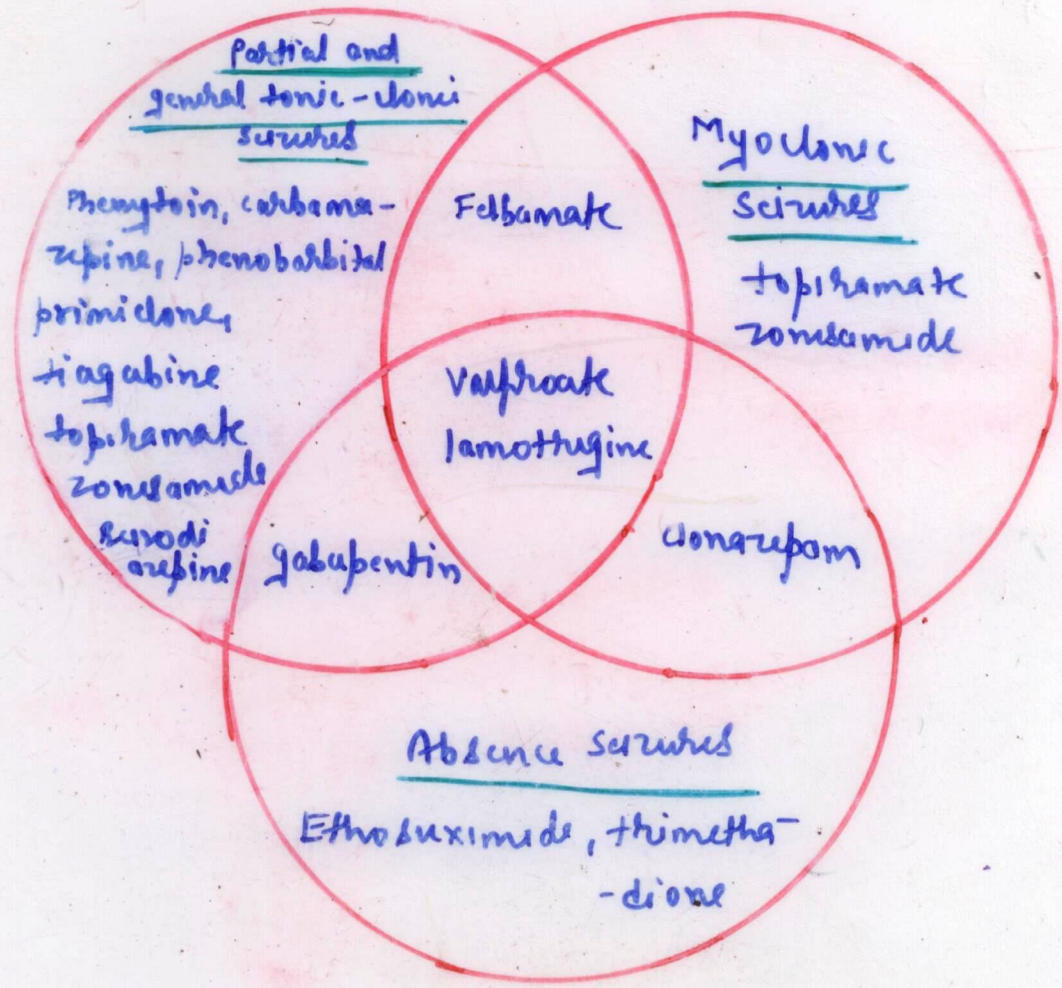 Partial and
general tonic-clonci
seizures
Phenytoin, carbama-
zepine, phenobarbital
primidone,
tiagabine
topiramate
zonisamide
Benzodi
azepine
Felbamate
Myoclonic
Seizures
topiramate
zonisamide
Valproate
lamotrigine
gabapentin
clonazepam
Absence seizures
Ethosuximide, trimetha-
-dione